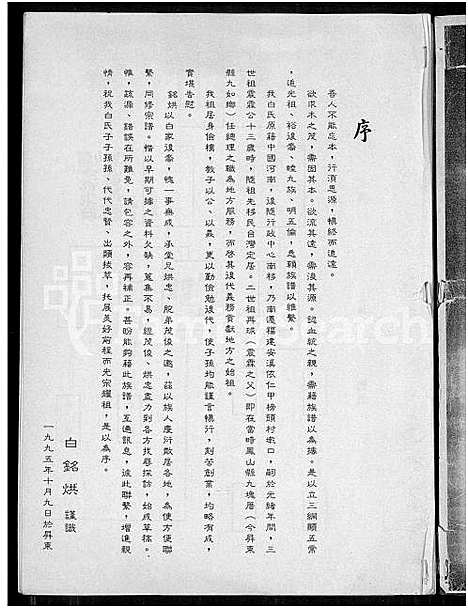 序
吾人不能忘本，行須思源，慎終而追遠。
欲求木之茂，需固其本。欲流其遠，需浚其源。認血統之親，需藉族譜以為據。是以立三綱顯五常
，追光祖、裕後裔、睦九族、明五倫，悉賴族譜以維繫。
我白氏原籍中國河南，後隨行政中心南移，乃南遷福建安溪依仁甲榜頭村㙮口，嗣於光緒年間，三
世祖震霖公十三歲時，隨祖先移民台灣定居。二世祖再球（震霖之父）即在當時鳳山縣九塊厝（今屏東
縣九如鄉）任總理之職為地方服務，而啓其後代義務貢獻地方之始祖。
我祖居身儉樸，教子以公、以義，更以勤儉勉後代，使子孫均能謹言慎行，刻苦創業，均略有成，
實堪告慰。
銘烘以白家後裔，愧一事無成，承堂兄烘忠、銘弟茂俊之邀，茲以族人慶衍散居各地，為使方便聯
繫，同修宗譜。惜以早期可據之資料欠缺，蒐集不易，經茂俊、烘忠盡力到各方找尋探訪，始成草稿。
惟，疏漏、錯誤在所難免，請包容之外，容再補正。甚盼能夠藉此族譜，互通訊息，彼此聯繫，增進親
情，祝我白氏子子孫孫、代代忠賢、出類拔萃，拓展美好前程而光宗耀祖，是以為序。
白銘烘 謹識
一九九五年十月九日於屏東